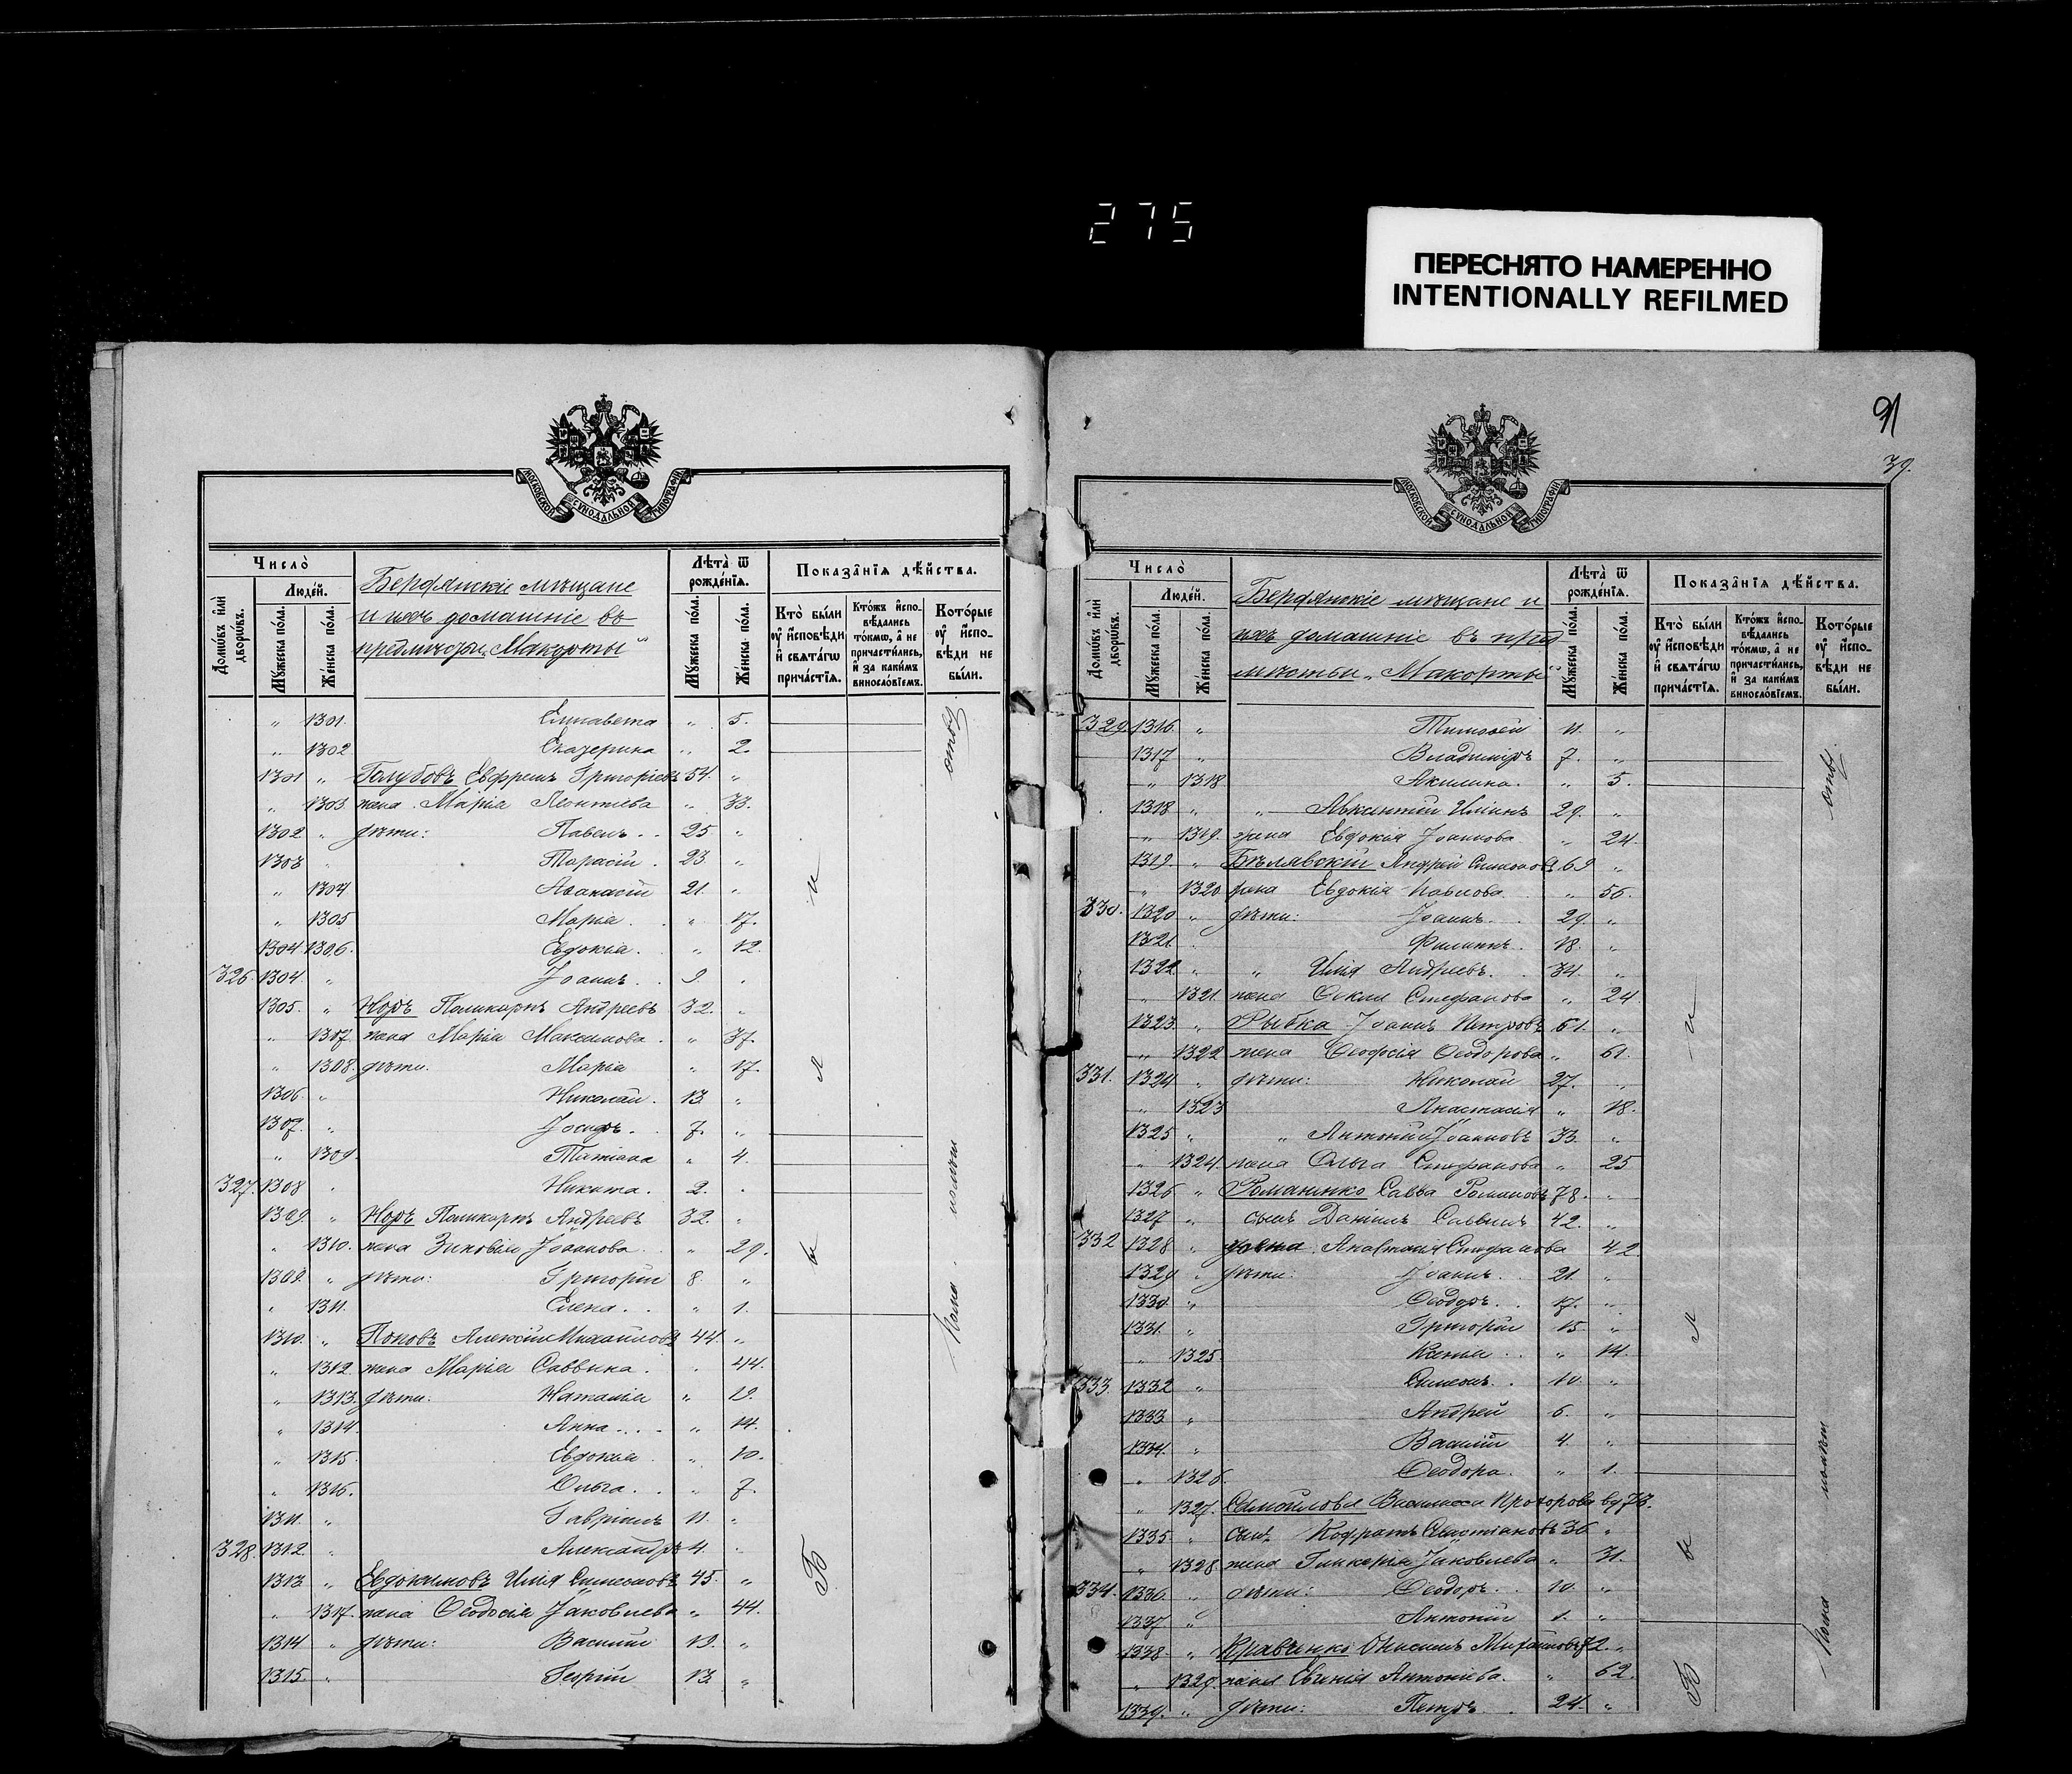 275
ПЕРЕСНЯТО НАМЕРЕННО
INTENTIONALLY REFILMED
МОСКОВСКОЙ СѴНОДАЛЬНОЙ ТИПОГРАФІИ
Число̀
Домѡ́въ и҆лѝ дворѡ́въ.
Люде́й.
Мꙋ́жеска по́ла.
Же́нска по́ла.
Бердянскіе мѣщане
и ихъ домашніе въ
предмѣстьи „Макорты“
Лѣта̀ ѿ рожде́нїѧ.
Мꙋ́жеска по́ла.
Же́нска по́ла.
Показа̑нїѧ дѣ́йства.
Кто̀ бы́ли ᲂу҆ и҆сповѣ́ди и҆ свѧта́гѡ прича́стїѧ.
Кто́жъ и҆спо-вѣ́дались то́кмѡ, а҆ не причасти́лись, и҆ за каки́мъ винносло́вїемъ.
Кото́рые ᲂу҆ и҆спо-вѣ́ди не бы́ли.
„ 1301. Елисавета „ 5.
„ 1302 Екатерина „ 2.
1301 „ Голубовъ Евфремъ Григорьевъ 54. „
„ 1303 жена Марія Леонтіева „ 33.
1302 „ дѣти: Павелъ 25 „
1303 Тарасій 23 „
„ 1304 Аѳанасій 21. „
„ 1305 Марія „ 17.
1304 1306. Евдокія „ 12.
326. 1304 „ Іоаннъ 9.
1305. „ Норъ Поликарпъ Андреевъ 32. „
„ 1307 жена Марія Максимова „ 37.
„ 1308. дѣти: Марія „ 17.
1306. „ Николай 13 „
1307. „ Іосифъ 7. „
„ 1309. Татіана „ 4.
327. 1308 Никита 2.
1309. „ Норъ Поликарпъ Андреевъ 32. „
„ 1310. жена Зиновія Іоанова „ 29.
1309. „ дѣти: Григорій 8. „
„ 1311. Елена „ 1.
1310. „ Поповъ Алексій Михайловъ 44. „
„ 1312. жена Марія Саввина 44.
„ 1313. дѣти: Наталія „ 19.
„ 1314. Анна „ 14.
„ 1315. Евдокія „ 10.
„ 1316. Ольга „ 7.
1311. „ Гавріилъ 11. „
328. 1312. „ Александръ 4.
1313. „ Евдокимовъ Илія Симеоновъ 45. „
„ 1317. жена Ѳеодосія Іаковлева „ 44.
1314 „ дѣти: Василій 19. „
1315. „ Георгій 13. „
Б ы л и
91
39.
МОСКОВСКОЙ СѴНОДАЛЬНОЙ ТИПОГРАФІИ
Число̀
Домѡ́въ и҆лѝ дворѡ́въ.
Люде́й.
Мꙋ́жеска по́ла.
Же́нска по́ла.
Бердянскіе мѣщане и
ихъ домашніе въ пред
мѣстьи „Макорты“
Лѣта̀ ѿ рожде́нїѧ.
Мꙋ́жеска по́ла.
Же́нска по́ла.
Показа̑нїѧ дѣ́йства.
Кто̀ бы́ли ᲂу҆ и҆сповѣ́ди и҆ свѧта́гѡ прича́стїѧ.
Кто́жъ и҆спо-вѣ́дались то́кмѡ, а҆ не причасти́лись, и҆ за каки́мъ винносло́вїемъ.
Кото́рые ᲂу҆ и҆спо-вѣ́ди не бы́ли.
329. 1316. „ Тимоѳей 11. „
1317 „ Владиміръ 7. „
„ 1318. Акилина „ 5.
1318 „ „ Авксентій Иліинъ 29. „
„ 1319. жена Евдокія Іоаннова „ 24.
1319. „ Бѣлявскій Андрей Симоновъ 69 „
„ 1320 жена Евдокія Павлова „ 56.
330. 1320 „ дѣти: Іоаннъ 29. „
1321 Филиппъ 18. „
1322 „ „ Илія Андреевъ 34. „
„ 1321. жена Ѳекла Стефанова „ 24
1323. „ Рыбка Іоаннъ Петровъ 61. „
„ 1322 жена Ѳеодосія Ѳеодорова „ 61.
331. 1324 „ дѣти: Николай 27. „
„ 1323 Анастасія „ 18.
1325 „ „ Антоній Іоанновъ 33. „
„ 1324. жена Ольга Стефанова „ 25
1326 „ Романенко Савва Романовъ 78. „
1327 „ сынъ Даніилъ Саввинъ 42. „
332 1328 „ жена Анастасія Стефанова 42
1329 „ дѣти: Іоаннъ 21. „
1330. „ Ѳеодоръ 17. „
1331. „ Григорій 15. „
„ 1325. Ксенія „ 14.
333 1332 „ Симеонъ 10. „
1333 „ Андрей 6. „
1334. „ Василій 4. „
„ 1326. Ѳеодора „ 1.
„ 1327. Самойлова Василисса Прохорова вд. 73.
1335 „ сынъ Кодратъ 36 „
„ 1328 жена Гликерія Іаковлева „ 31.
334. 1336. „ дѣти: Ѳеодоръ 10. „
1337. „ Антоній 1. „
1338 „ Кравченко Онисимъ Михайловъ 72. „
„ 1329. жена Евгенія Антоніева „ 62.
1339. „ дѣти: Петръ 24. „
Б ы л и